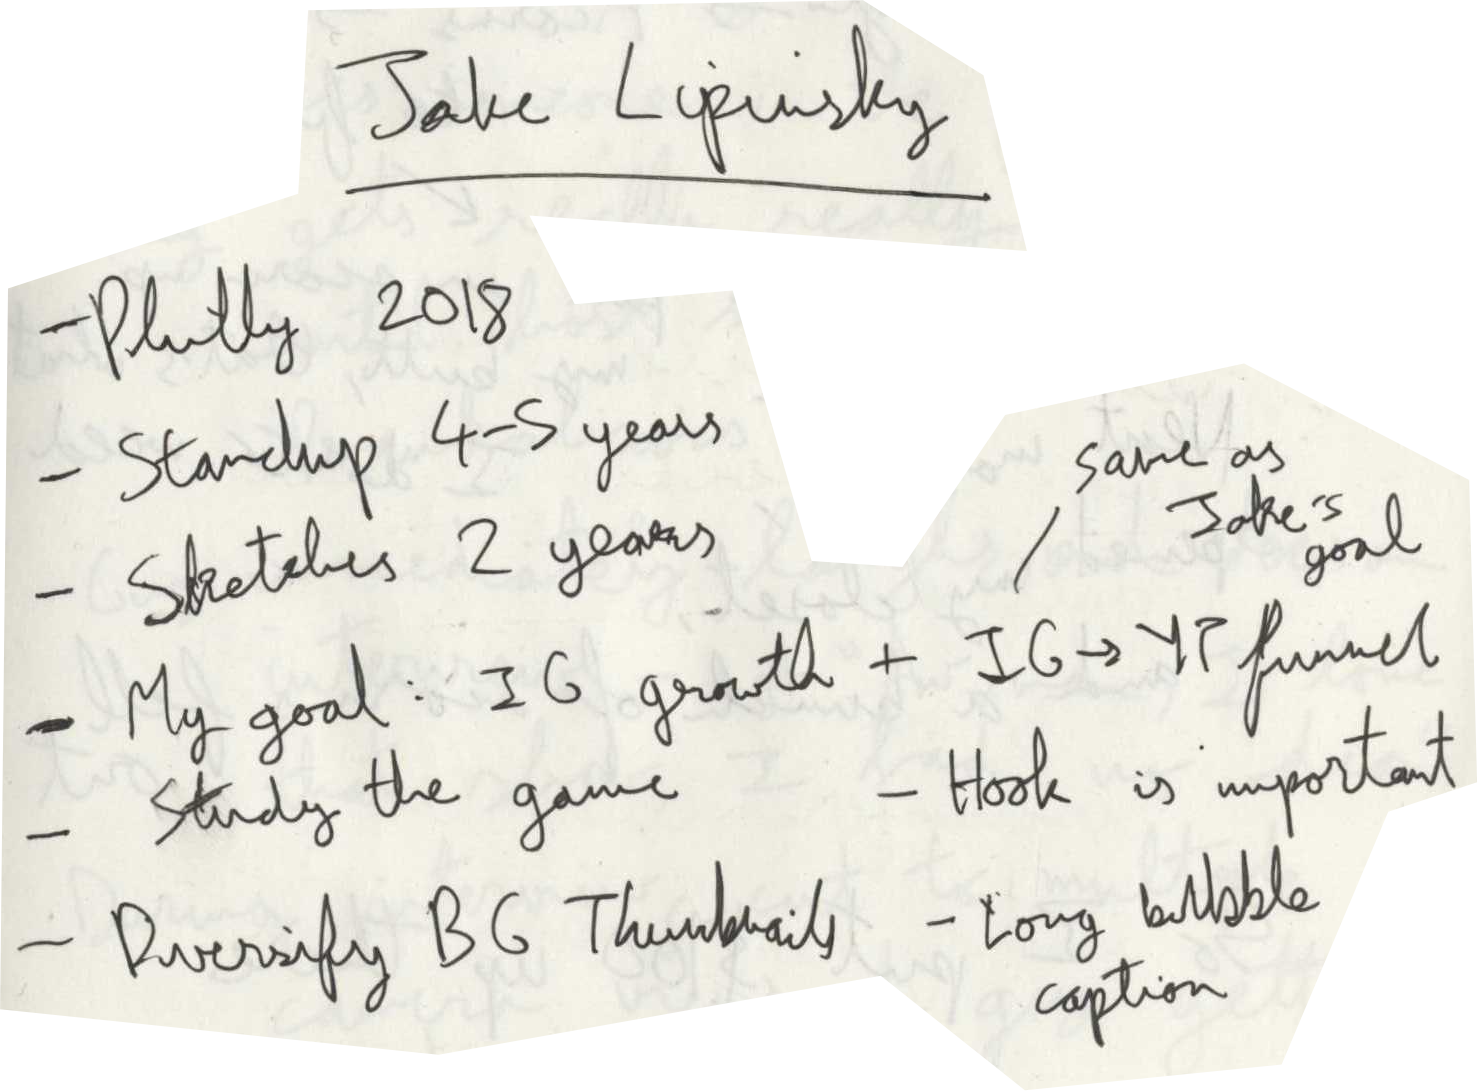 Jake Lipinsky
- Philly 2018
- Standup 4-5 years
- Sketches 2 years
same as
Jake's
goal
- My goal: IG growth + IG → YT funnel
- Study the game
- Hook is important
- Diversify BG Thumbnails
- Long bubble
caption